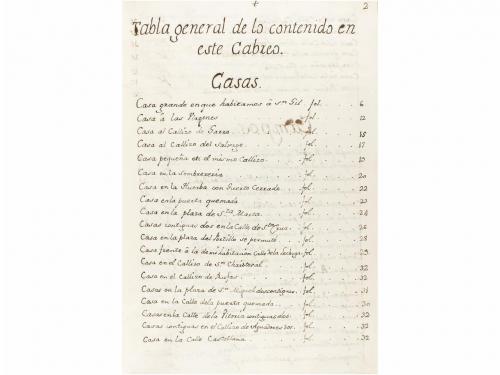 + 2
Tabla general de lo contenido en
este Cabreo.
Casas.
Casa grande en que habitamos â Sn Gil. fol. 6
Casa â las Virgenes fol. 12
Casa al Callizo de fol. 15
Casa al Callizo del Salvage. fol. 17
Casa pequeña en el mismo Callizo. fol. 19
Casa en la Sombrereria fol. 20
Casa en la Huerba con Huerto Cerrado fol. 22
Casa en la puerta quemada fol. 23
Casa en la plaza de Sta Marta. fol. 24
Casas contiguas dos en la Calle de Sta Cruz. fol. 26
Casa en la plaza del Portillo se permutó fol. 28
Casa frente â la de mi habitacion Calle de la fol. 29
Casa en el Callizo de Sn Christoval fol. 32
Casa en el Callizo de Rufas fol. 32
Casas en la plaza de Sn Miguel dos contiguas fol. 31
Casa en la Calle de la puerta quemada fol. 30
Casas en la Calle de la Vitoria contiguas dos. fol. 32
Casas contiguas en el Callizo de Aguadores dos. fol. 32
Casa en la Calle Castellana fol. 32